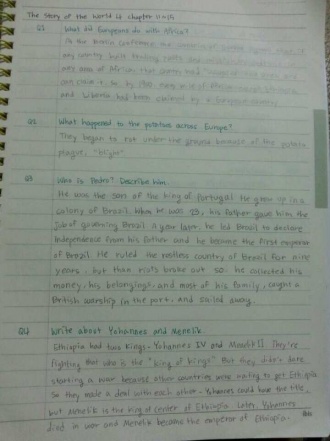 The story of the world 4 chapter 11~15
Q1 What did Europeans do with Africa?
Q2 What happened to the potatoes across Europe?
They began to rot under the ground because of the potato
plague, "blight"
Q3 Who is Pedro? Describe him.
He was the son of the king of Portugal. He grew up in a
colony of Brazil. When he was 23, his father gave him the
job of governing Brazil. A year later, he led Brazil to declare
Independence from his father and he became the first emperor
of Brazil. He ruled the restless country of Brazil for nine
years, but then riots broke out so he collected his
money, his belongings, and most of his family, caught a
British warship in the port, and sailed away.
Q4 Write about Yohannes and Menelik.
Ethiopia had two kings - Yohannes IV and Menelik II. They're
fighting that who is the "king of kings" But they didn't dare
starting a war because other countries were waiting to get Ethiopia
So they made a deal with each other - Yohannes could have the title,
but Menelik is the king of center of Ethiopia. Later, Yohannes
died in war and Menelik became the emperor of Ethiopia.